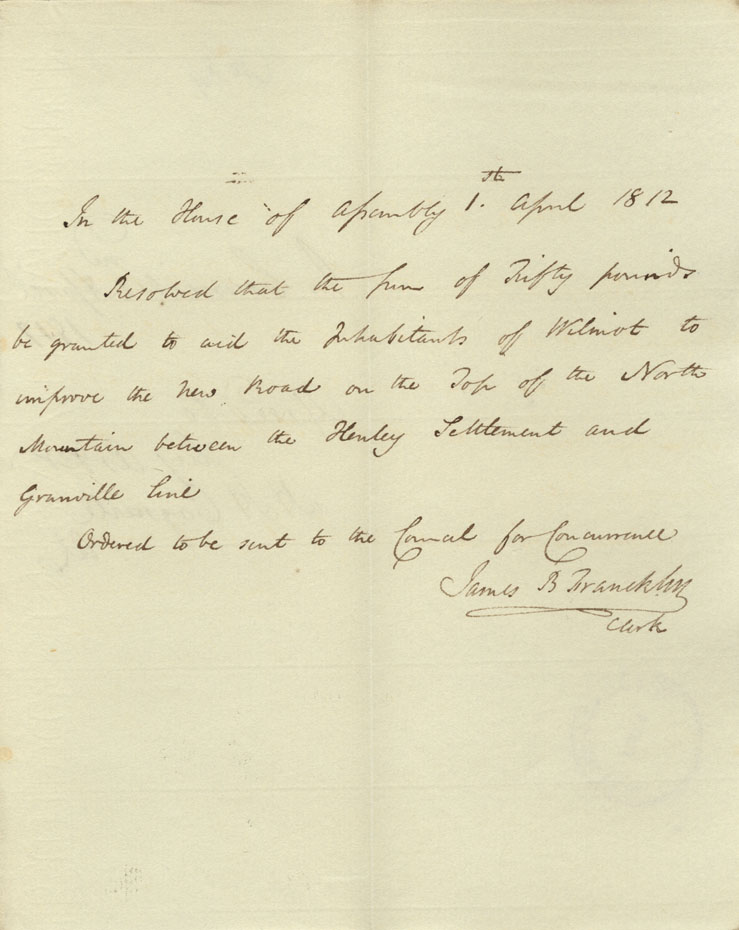 In the House of Assembly 1.th April 1812
Resolved that the sum of Fifty pounds
be granted to aid the Inhabitants of Wilmot to
improve the New Road on the Top of the North
Mountain between the Henley Settlement and
Granville line
Ordered to be sent to the Council for Concurrence
James B Francklin
Clerk